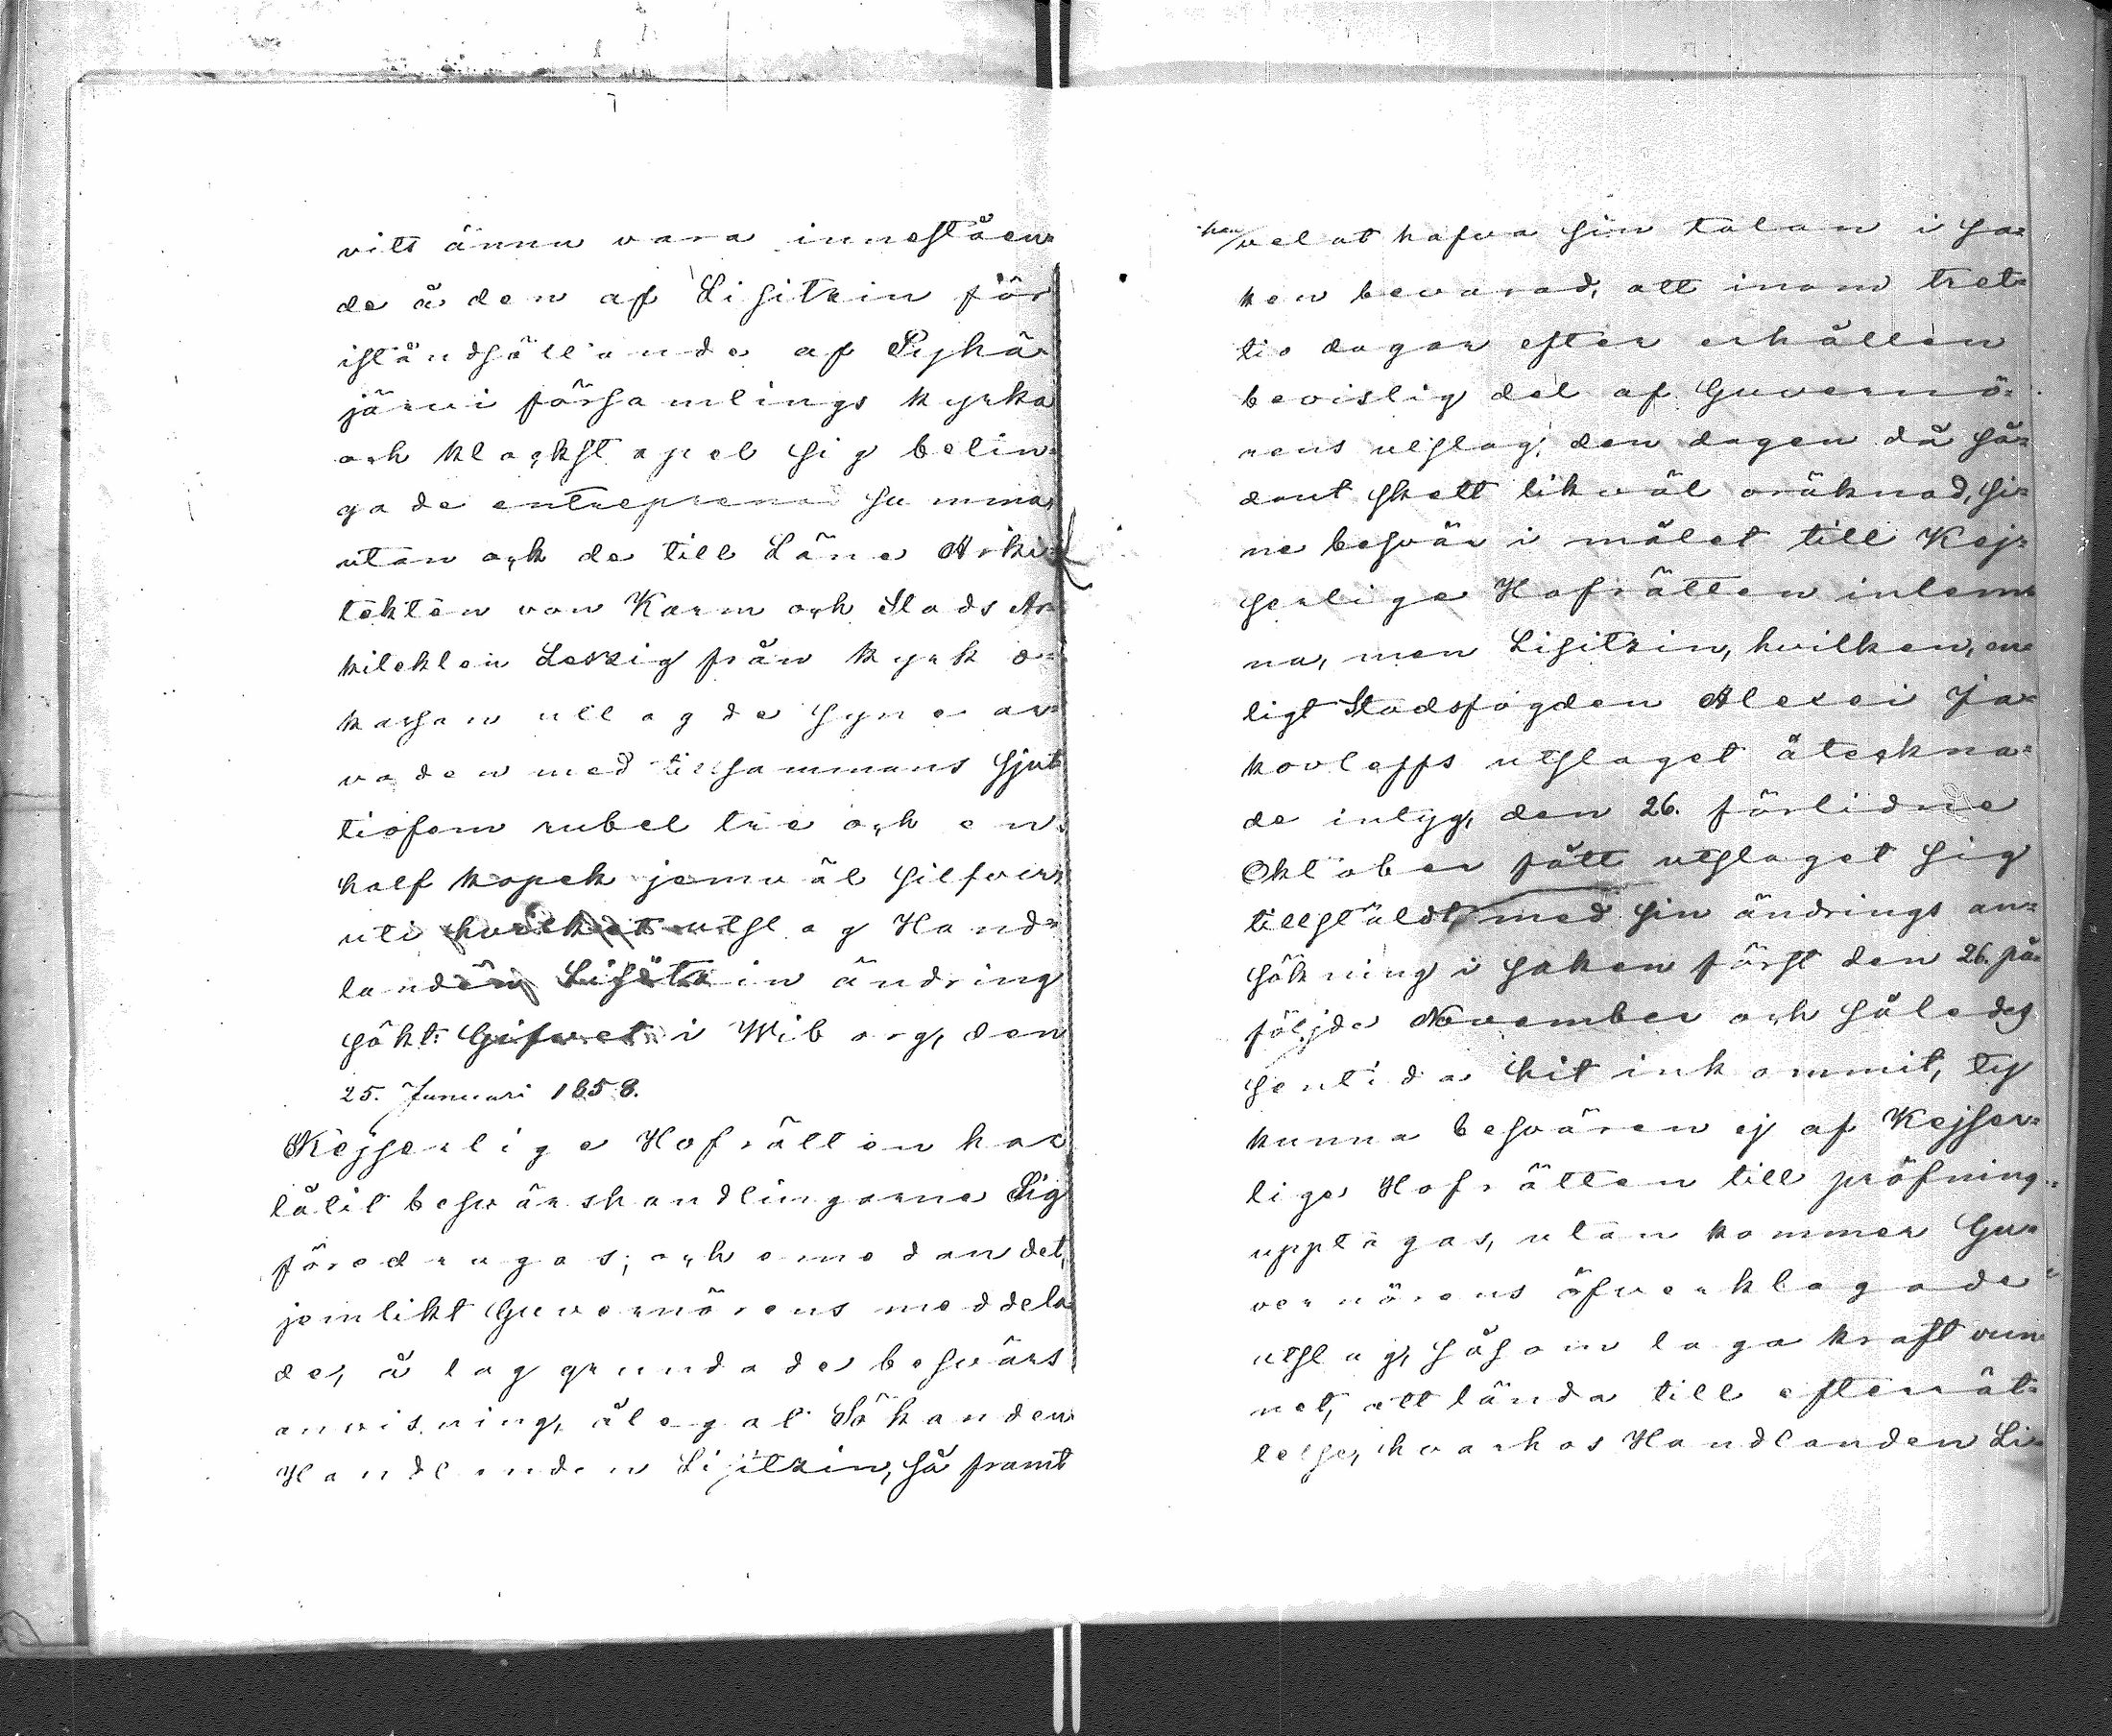 vitt ännu vara innestäen-
de å den af Lisitzin för
iståndsättande af Pyhä-
järvi församlings kyrka
och klockstapel sig betin-
gade entreprenad summa,
utan ock de till Läns Arki-
tekten von Karm och Stads Ar-
kitekten Leszig från kyrk o-
kassan uttagde syne ar-
voden med tillsammans sjut-
tiofem rubel tre och en
half kopek jemväl silfver;
uti hvilket utslag Hand-
landen Lisitzin ändring
sökt. Gifvet i Wiborg, den
25. Januari 1858.
Kejserlige Hofrätten har
låtit besvärshandlingarne Sig
föredragas; och emedan det,
jemlikt Guvernörens meddela
de, å lag grundade besvärs
anvisning, ålegat Sökanden
Handlanden Lisitzin, så framt
han velat hafva sin talan i sa-
ken bevarad, att inom tret-
tio dagar efter erhållen
bevislig del af Guvernö-
rens utslag, den dagen då så-
dant skett likväl oräknad, si-
ne besvär i målet till Kej-
serlige Hofrätten inlem-
na, men Lisitzin, hvilken, en-
ligt Stadsfogden Alexei Ja-
kovleffs utslaget åteckna-
de intyg, den 26. förlidne
Oktober fått utslaget sig
tillstäldt, med sin ändrings an-
sökning i saken först den 26. på-
följde November och således
sentida hit inkommit, ty
kunna besvären ej af Kejser-
lige Hofrätten till pröfning
upptagas, utan kommer Gu-
vernörens öfverklagade
utslag, såsom laga kraft vun-
net, att lända till efterrät-
telse, hvarhos Handlanden Li-